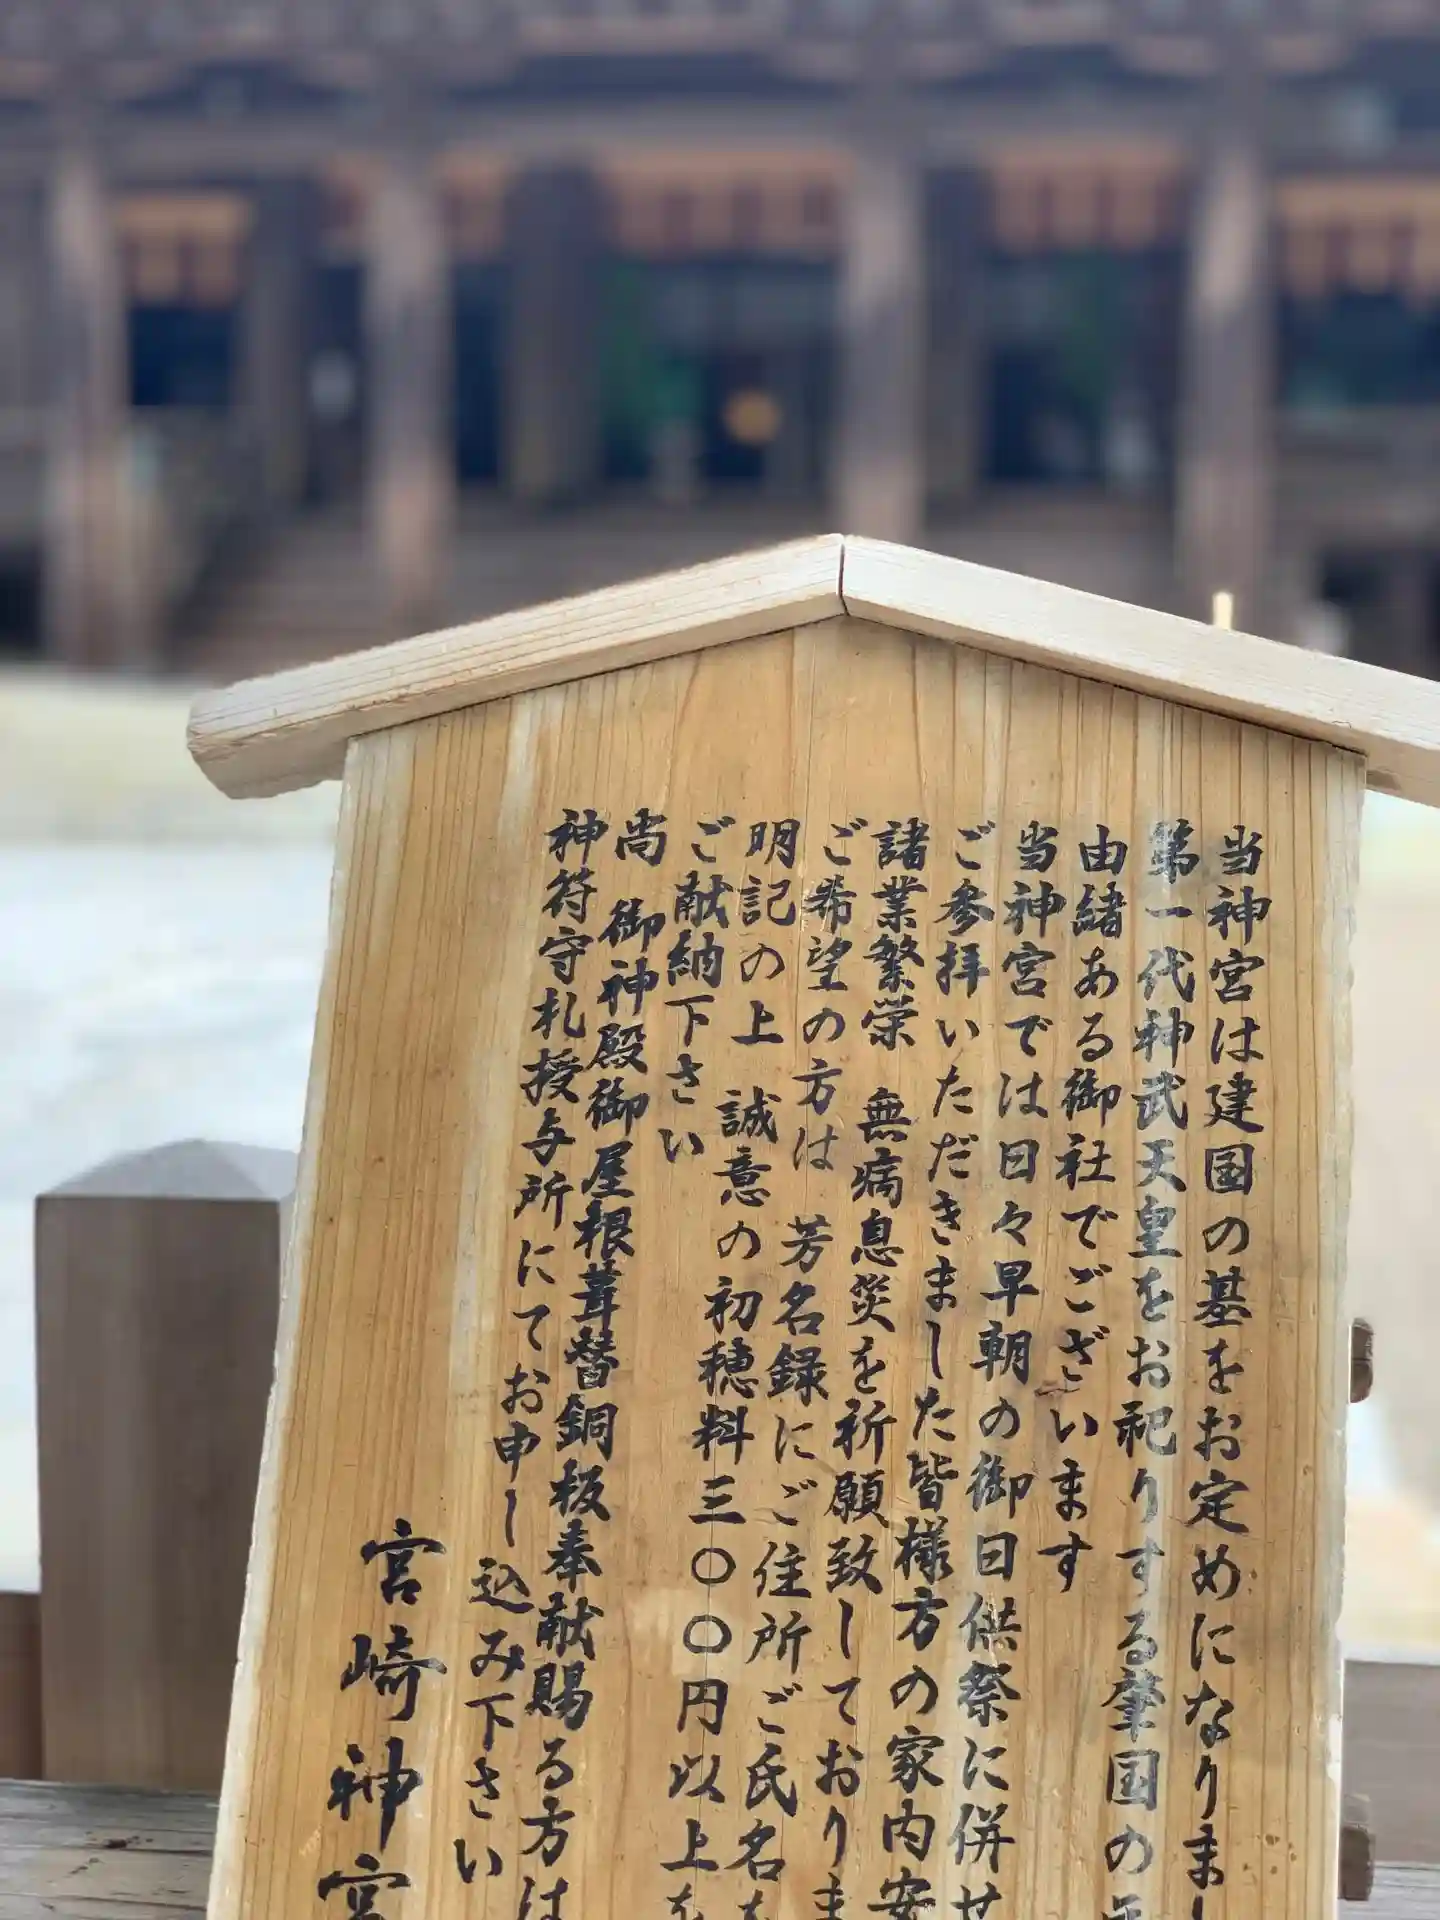 当神宮は建国の基をお定めになりまし
第一代神武天皇をお祀りする肇国の
由緒ある御社でございます
当神宮では日々早朝の御日供祭に併せ
ご参拝いただきました皆様方の家内安
諸業繁栄 無病息災を祈願致しておりま
ご希望の方は 芳名録にご住所ご氏名を
明記の上 誠意の初穂料三〇〇円以上を
ご献納下さい
尚 御神殿御屋根葺替銅板奉献賜る方は
神符守札授与所にてお申し込み下さい
宮崎神宮